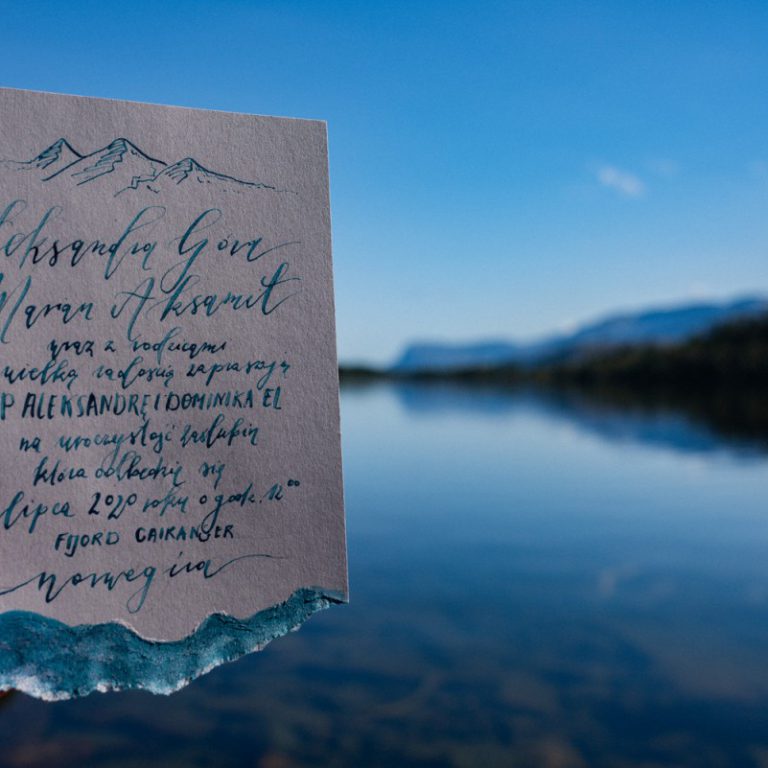 leksandra Góra
Maran Aksamit
wraz z rodzicami
wielką radością zapraszają
P ALEKSANDRĘ I DOMINIKA EL
na uroczystość zaślubin
która odbędzie się
lipca 2020 roku o godz. 12⁰⁰
FIJORD GAIRANGER
Norwegia